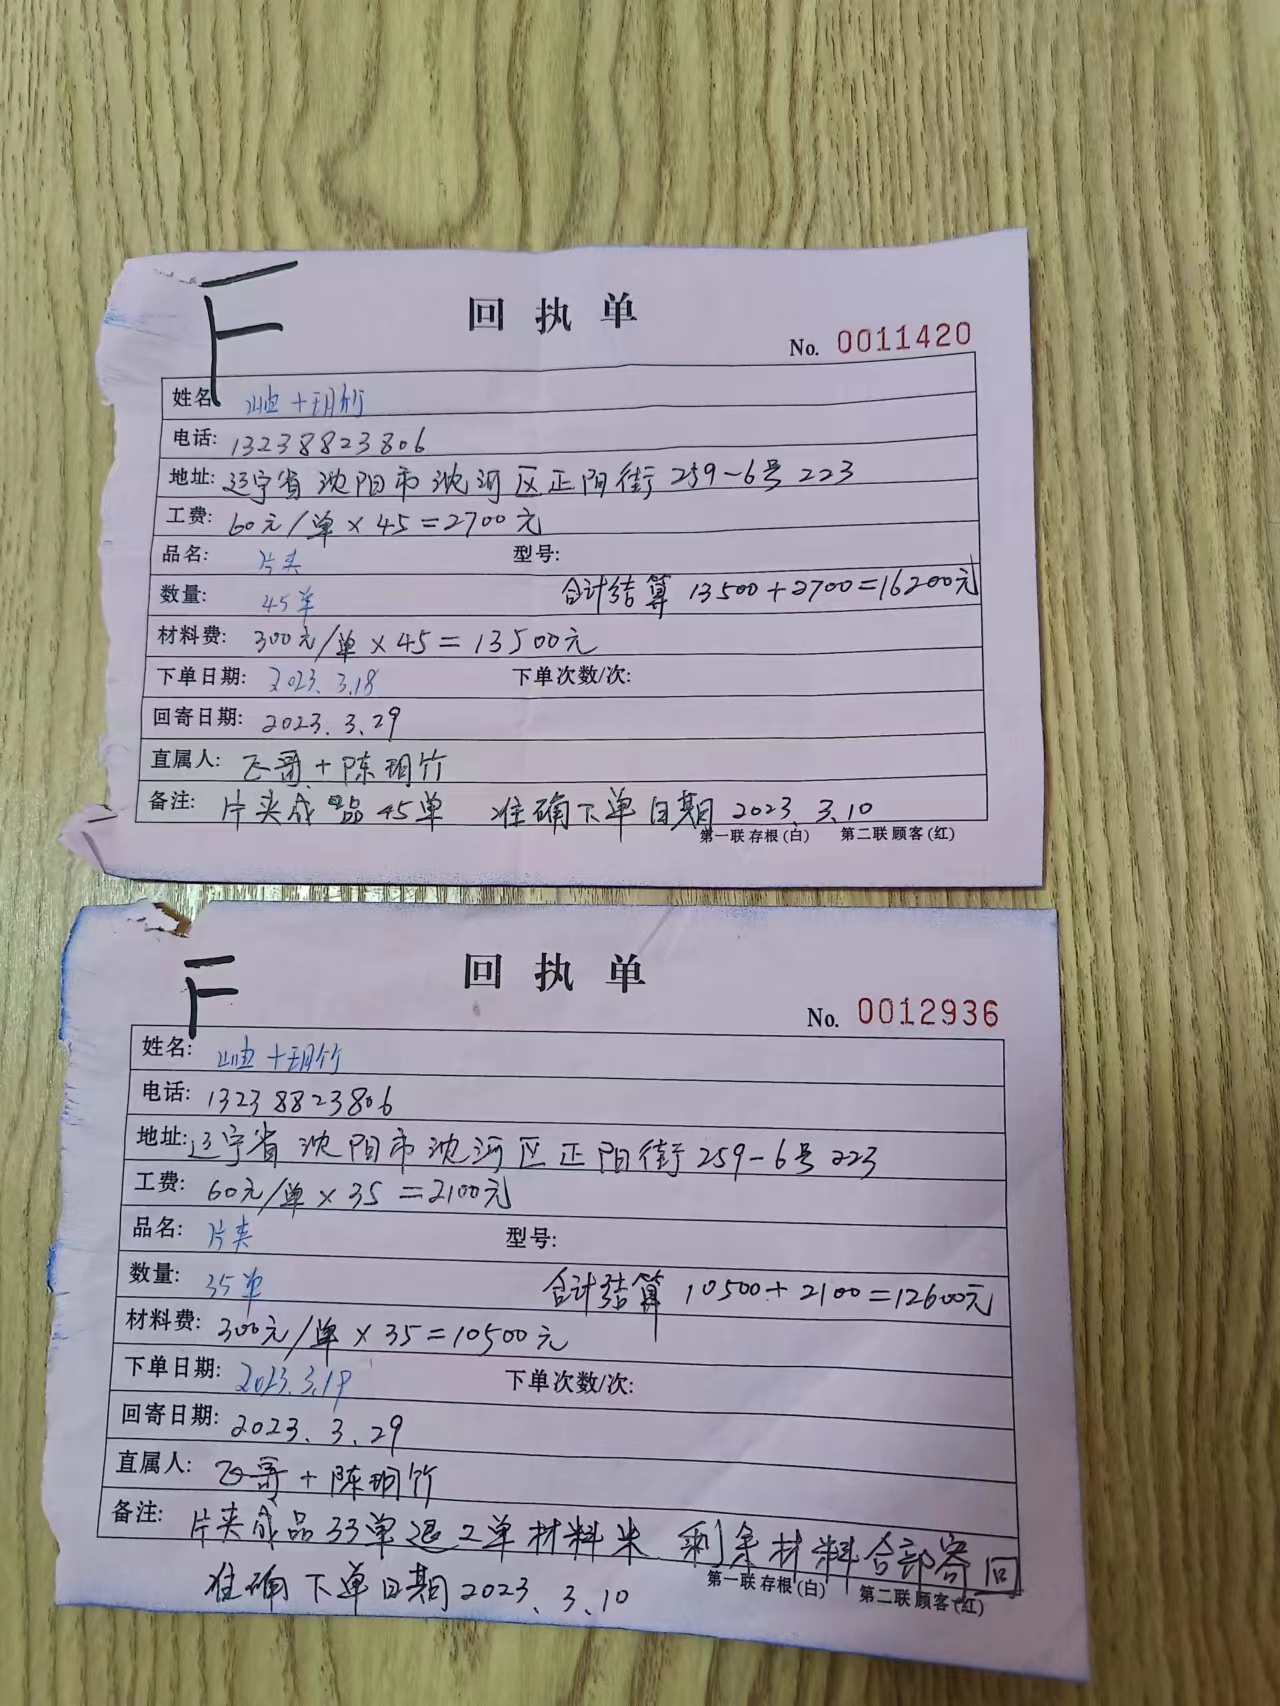 F
回执单
No. 0011420
姓名: 岫+玥竹
电话: 13238823806
地址: 辽宁省沈阳市沈河区正阳街259-6号223
工费: 60元/单×45=2700元
品名: 片夹 型号:
数量: 45单 合计结算 13500+2700=16200元
材料费: 300元/单×45=13500元
下单日期: 2023.3.18 下单次数/次:
回寄日期: 2023.3.29
直属人: 飞哥+陈玥竹
备注: 片夹成品45单 准确下单日期2023.3.10
第一联 存根(白) 第二联 顾客(红)
F
回执单
No. 0012936
姓名: 岫+玥竹
电话: 13238823806
地址: 辽宁省沈阳市沈河区正阳街259-6号223
工费: 60元/单×35=2100元
品名: 片夹 型号:
数量: 35单 合计结算 10500+2100=12600元
材料费: 300元/单×35=10500元
下单日期: 2023.3.19 下单次数/次:
回寄日期: 2023.3.29
直属人: 飞哥+陈玥竹
备注: 片夹成品33单退2单材料 剩余材料全部寄回
准确下单日期2023.3.10
第一联 存根(白) 第二联 顾客(红)